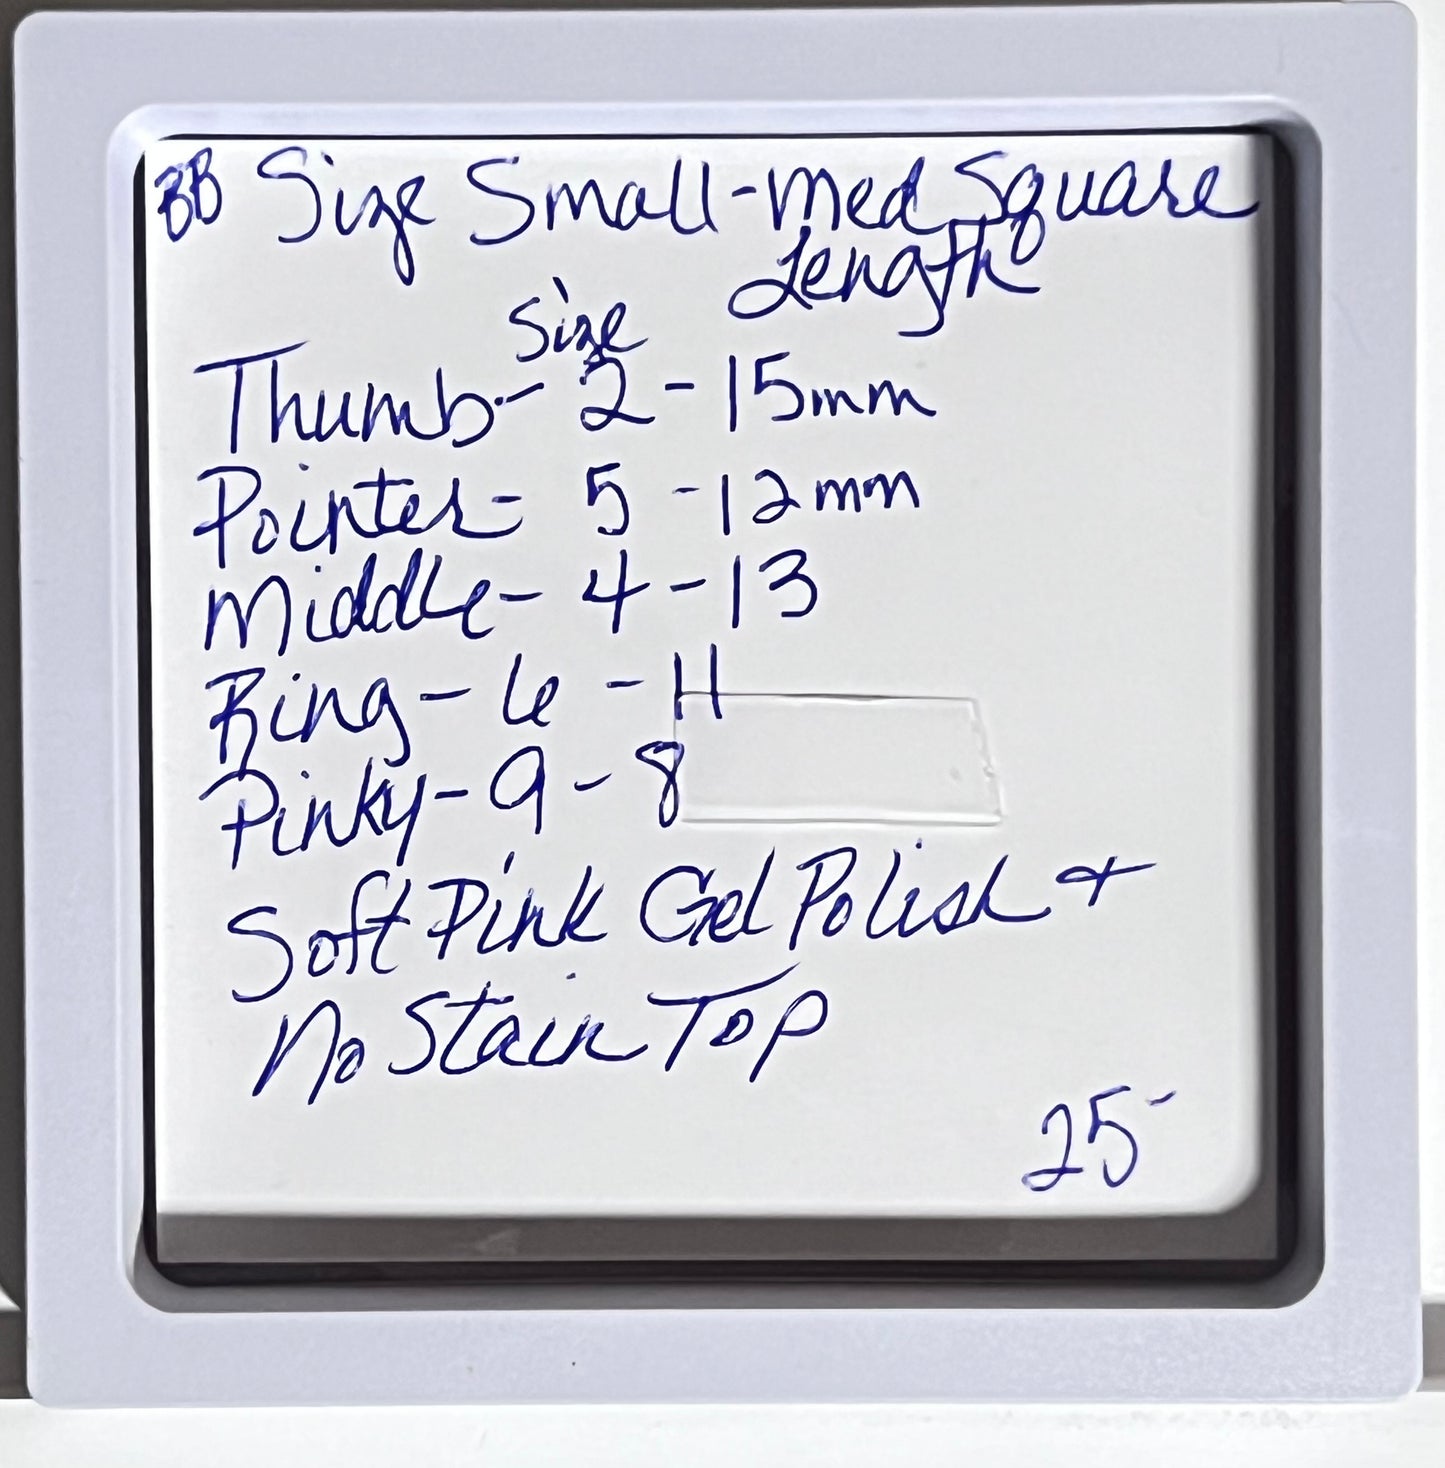 BB Size Small-Med Square
Length
Size
Thumb- 2 - 15mm
Pointer- 5 - 12mm
Middle- 4 - 13
Ring - 6 - 11
Pinky - 9 - 8
Soft Pink Gel Polish +
No Stain Top
25-